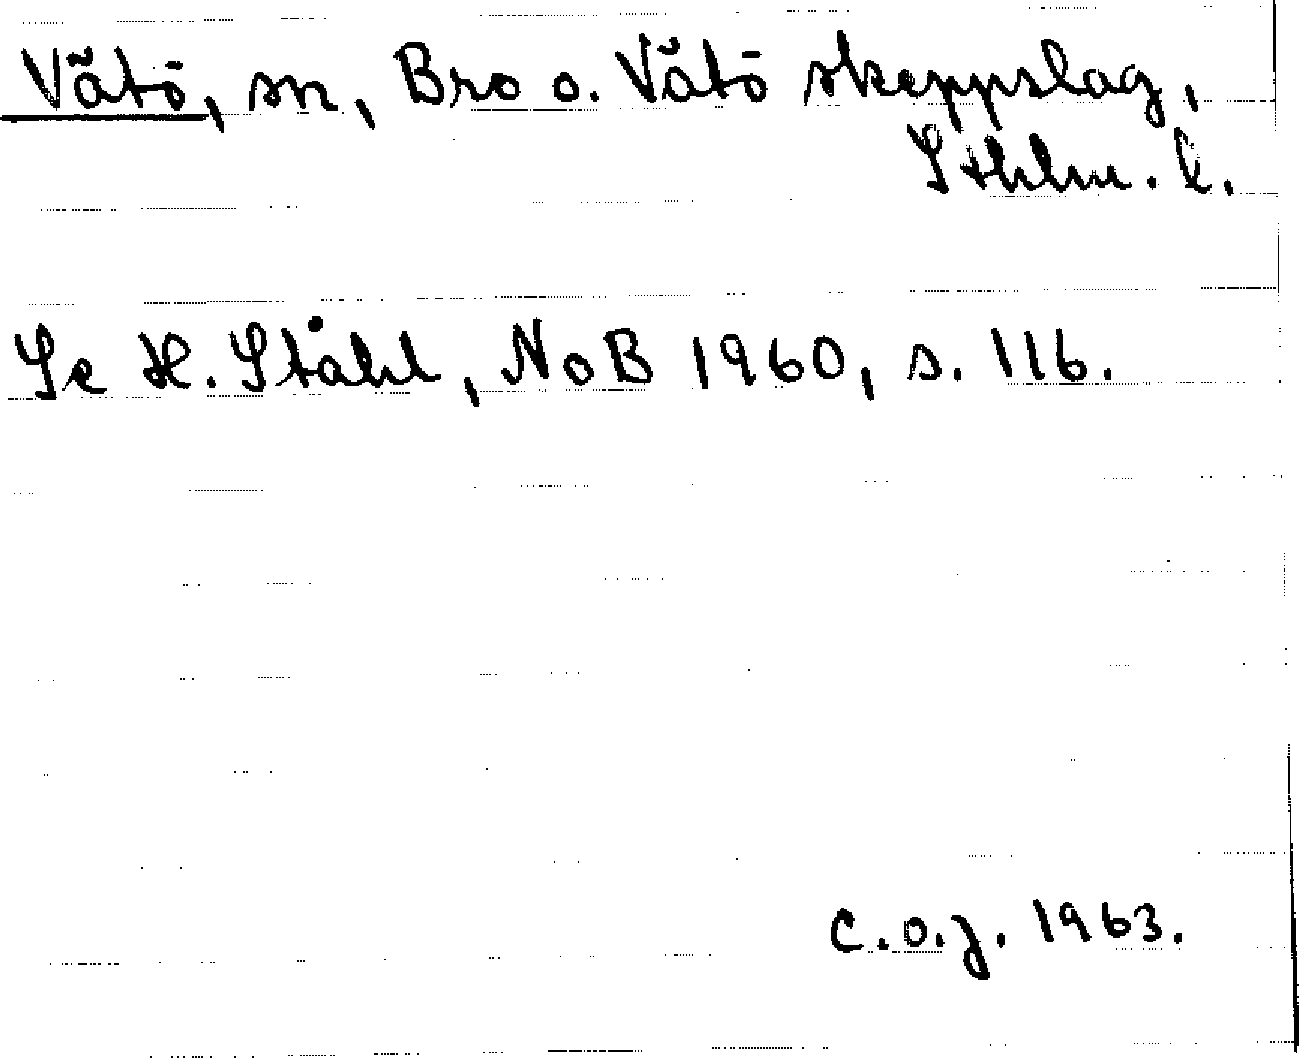 Vätö, sn, Bro o. Vätö skeppslag,
Sthlm. l.
Se H. Ståhl, NoB 1960, s. 116.
C.O.J. 1963.